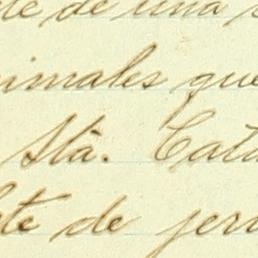 te de una
animales que
Stà. Cata
te de jeru